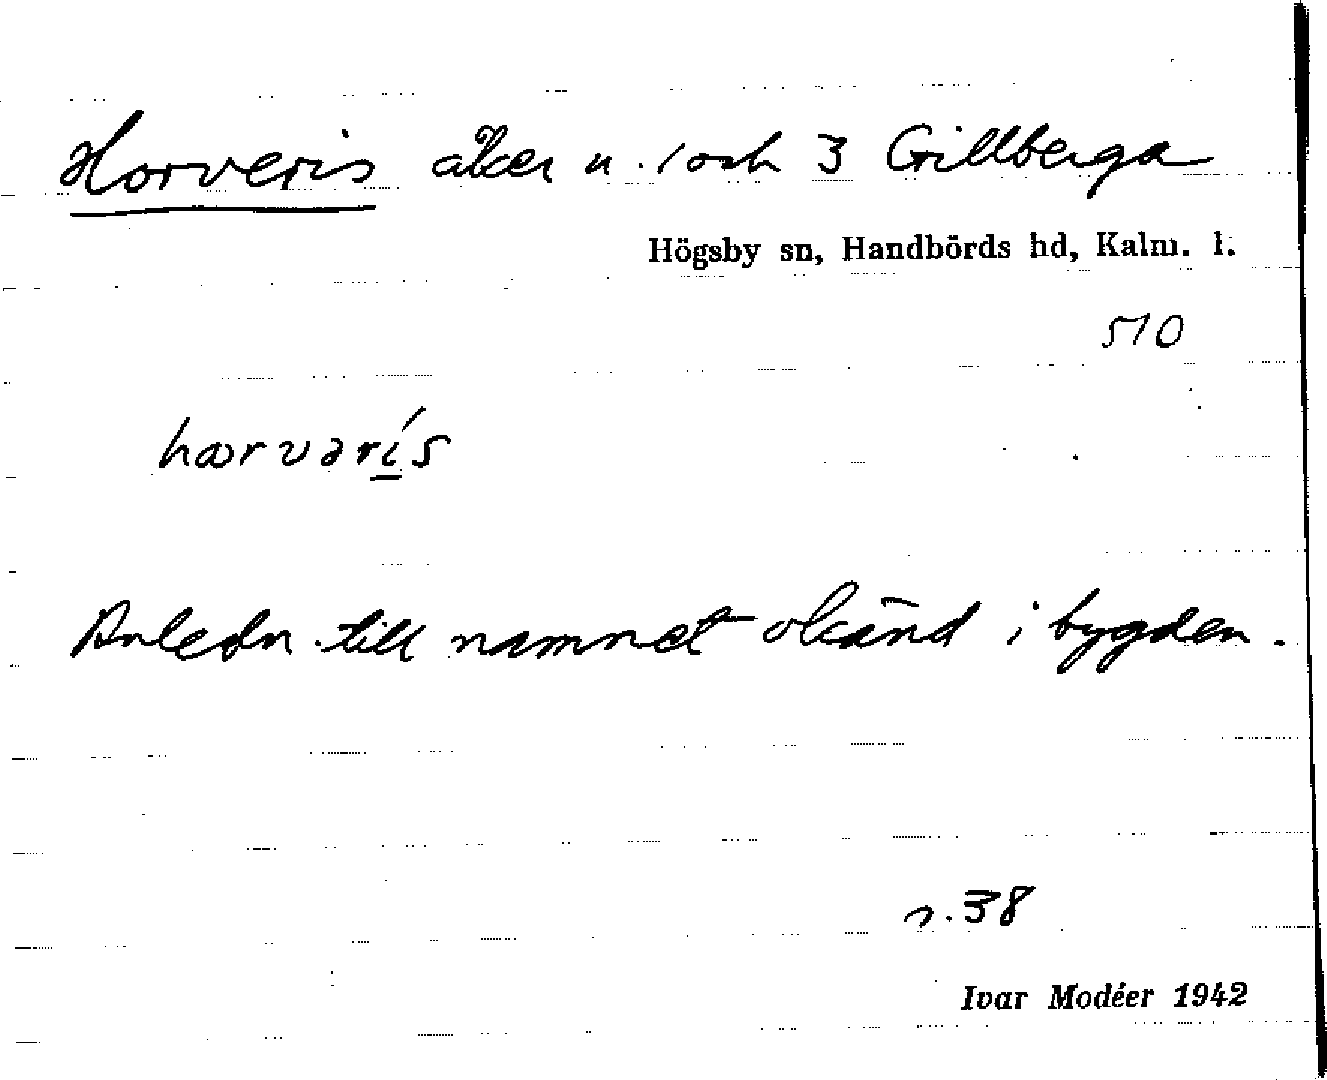 Horveris åker u. 1 och 3 Gillberga
Högsby sn, Handbörds hd, Kalm. l.
510
hωrvərís
Anledn till namnet okänd i bygden.
s. 38
Ivar Modéer 1942